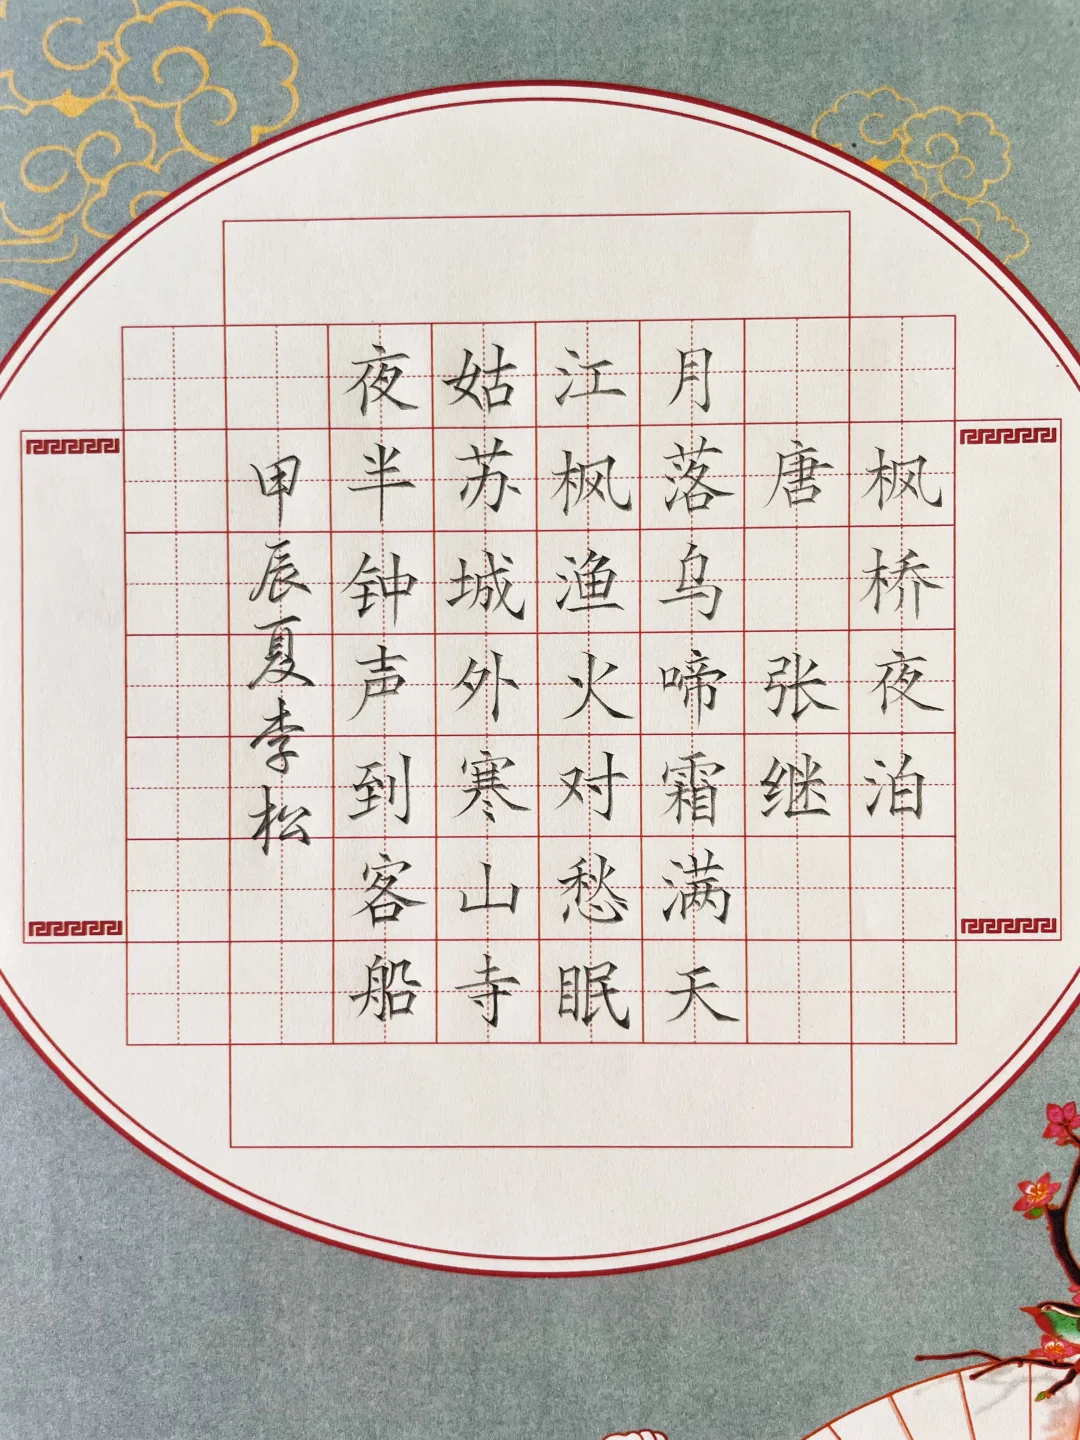 枫桥夜泊
唐张继
月落乌啼霜满天
江枫渔火对愁眠
姑苏城外寒山寺
夜半钟声到客船
甲辰夏李松